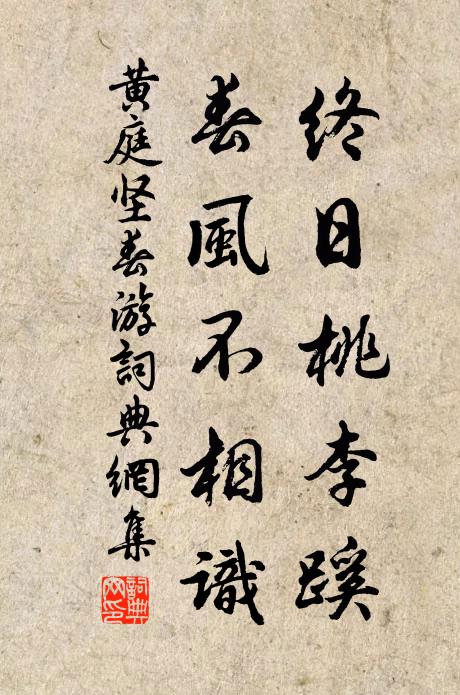 終日桃李蹊
春風不相識
黄庭坚春游詞典網集
詞典